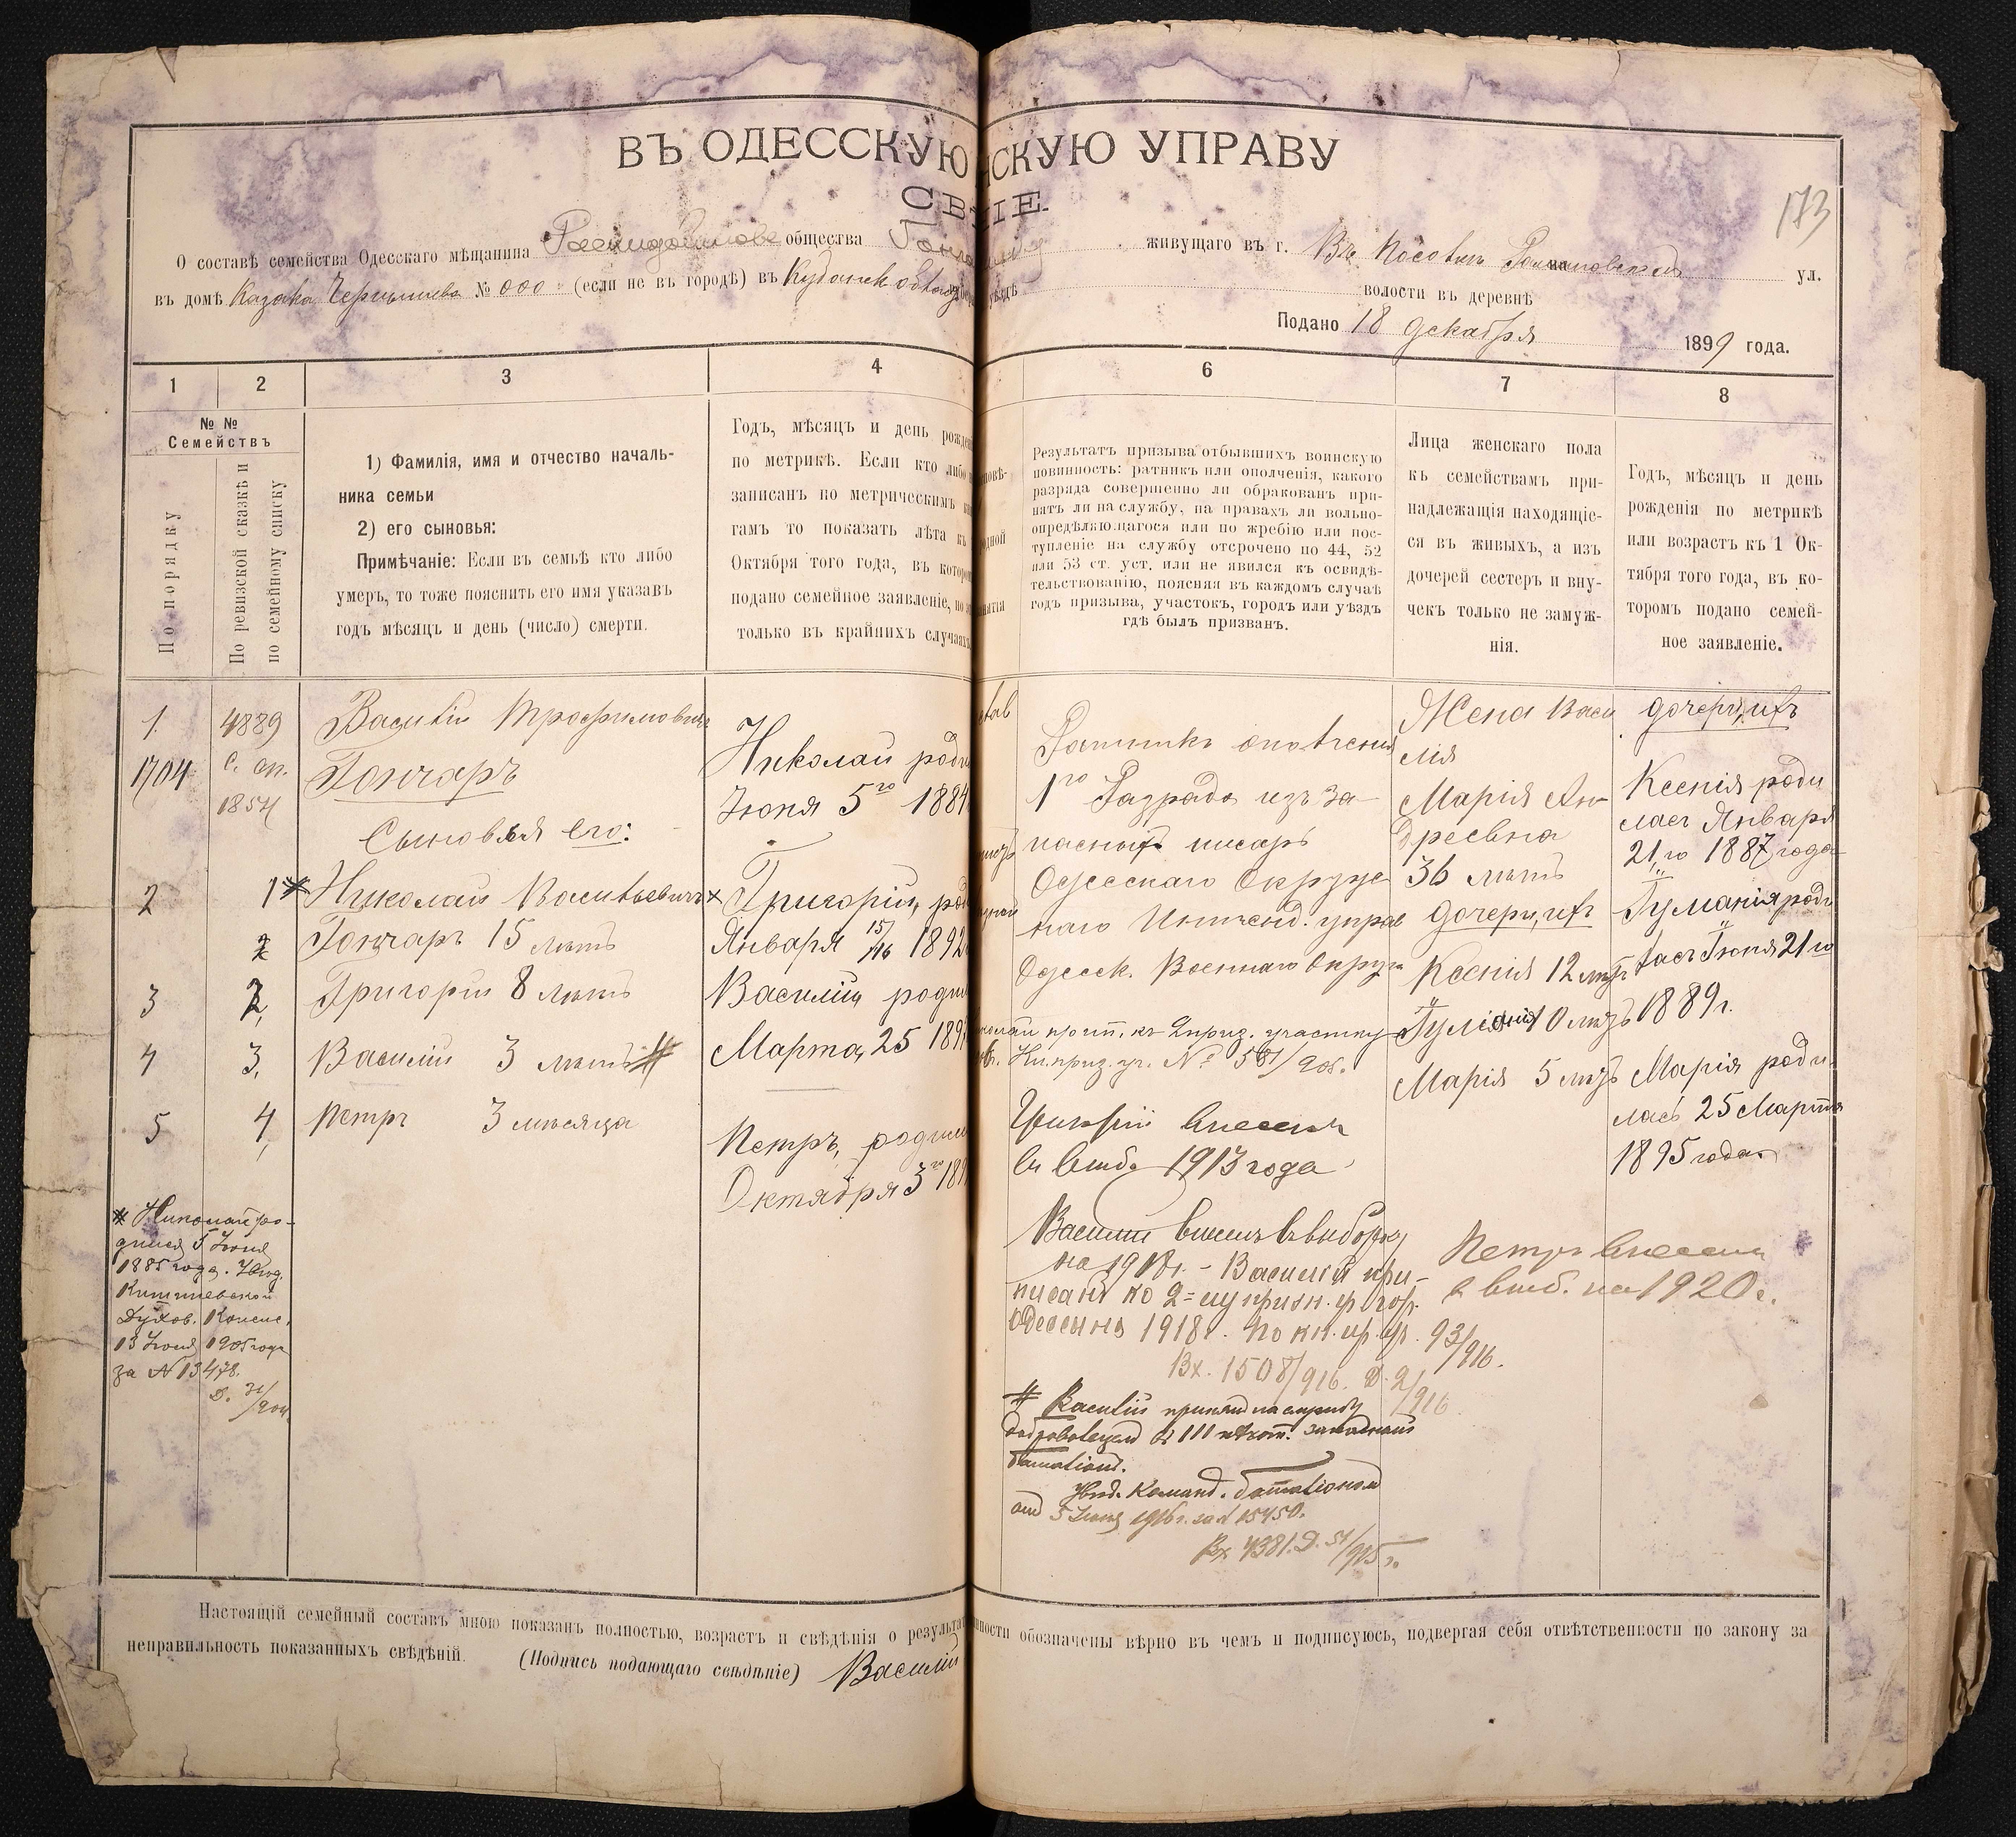 ВЪ ОДЕССКУЮ
НСКУЮ УПРАВУ
СВ
НІЕ.
173
О составѣ семейства Одесскаго мѣщанина общества
живущаго въ г. ул.
въ домѣ Казака № 000 (если не въ городѣ) въ уѣздѣ
волости въ деревнѣ
Подано 18 декабря 1899 года.
1
2
3
4
6
7
8
№ №
Семействъ
По порядку
По ревизской сказкѣ и
по семейному списку
1) Фамилія, имя и отчество началь-
ника семьи
2) его сыновья:
Примѣчаніе: Если въ семьѣ кто либо
умеръ, то тоже пояснить его имя указавъ
годъ мѣсяцъ и день (число) смерти.
Годъ, мѣсяцъ и день рожден
по метрикѣ. Если кто либо н
записанъ по метрическимъ
гамъ то показать лѣта къ
Октября того года, въ которо
подано семейное заявленіе,
только въ крайнихъ случаяхъ
Результатъ призыва отбывшихъ воинскую
повинность: ратникъ или ополченія, какого
разряда совершенно ли обракованъ при-
нятъ ли на службу, на правахъ ли вольно-
опредѣляющагося или по жребію или пос-
тупленіе на службу отсрочено по 44, 52
или 53 ст. уст. или не явился къ освидѣ-
тельствованію, поясняя въ каждомъ случаѣ
годъ призыва, участокъ, городъ или уѣздъ
гдѣ былъ призванъ.
Лица женскаго пола
къ семействамъ при-
надлежащія находящіе-
ся въ живыхъ, а изъ
дочерей сестеръ и вну-
чекъ только не замуж-
нія.
Годъ, мѣсяцъ и день
рожденія по метрикѣ
или возрастъ къ 1 Ок-
тября того года, въ ко-
торомъ подано семей-
ное заявленіе.
1. 4889 Василій Трофимовичъ
1704 с. сп. Гончаръ
1854
Сыновья его:
2 1 Николай Васильевичъ
2 Гончаръ 15 лѣтъ
3 2, Григорій 8 лѣтъ
4 3, Василій 3 лѣтъ #
5 4, Петръ 3 мѣсяца
Николай роди
Іюня 5го 1884
Григорій, род
Января 15/16 1892
Василій, родил
Марта, 25 189
Петръ, родил
Октября 3го 189
Ратникъ ополченія
1го Разряда изъ за-
пасныхъ писарь
Одесскаго Окруж
наго Интенд. управ
Одесск. Военнаго Округа
прип. къ 2 приз. участку
Кн. приз. уч. № 581/905.
Григорій внесенъ
въ выб. 1913 года
Василій внесенъ въ выборку
на 1918г. - Василій при-
писанъ ко 2=му призн. уч. гор.
Одессы на 1918г. по кн. пр. уч. 93/916.
Вх. 1508/916. Д. 2/916
# Василій принятъ на службу
въ 111 пѣхот. запасный
баталіонъ.
Увѣд. Команд. баталіона
отъ 5 Іюня 1916г. за № 15450.
Вх. 4381. Д. 51/915г.
Жена Васи
лія
Марія Ан-
дреевна
36 лѣтъ
дочери, ихъ
Ксенія 12 лѣтъ
10 лѣтъ
Марія 5 лѣтъ
дочери, ихъ
Ксенія роди
лась Января
21го 1887 года
роди
лась Іюня 21го
1889г.
Марія роди-
лась 25 Марта
1895 года
Петръ внесенъ
въ выб. на 1920г.
Николай ро-
дился 5 Іюня
1885 года. Увѣд.
Кишиневской
Духов. Консис.
13 Іюня 1905 года
за № 13478.
Настоящій семейный составъ мною показанъ полностью, возрастъ и свѣдѣнія о результат
нности обозначены вѣрно въ чемъ и подписуюсь, подвергая себя отвѣтственности по закону за
неправильность показанныхъ свѣдѣній. (Подпись подающаго свѣдѣніе) Василій